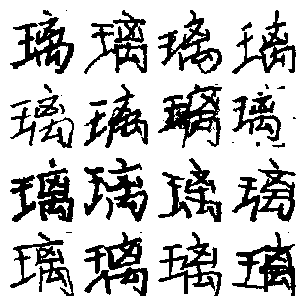 璃璃璃璃
璃璃璃璃
璃璃璃璃
璃璃璃璃